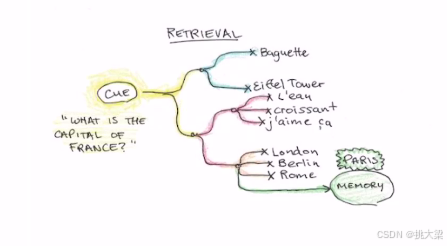 RETRIEVAL
Baguette
CUE
Eiffel Tower
L'eau
croissant
j'aime ça
"WHAT IS THE
CAPITAL OF
FRANCE?"
London
Berlin
Rome
PARIS
MEMORY
CSDN @挑大梁